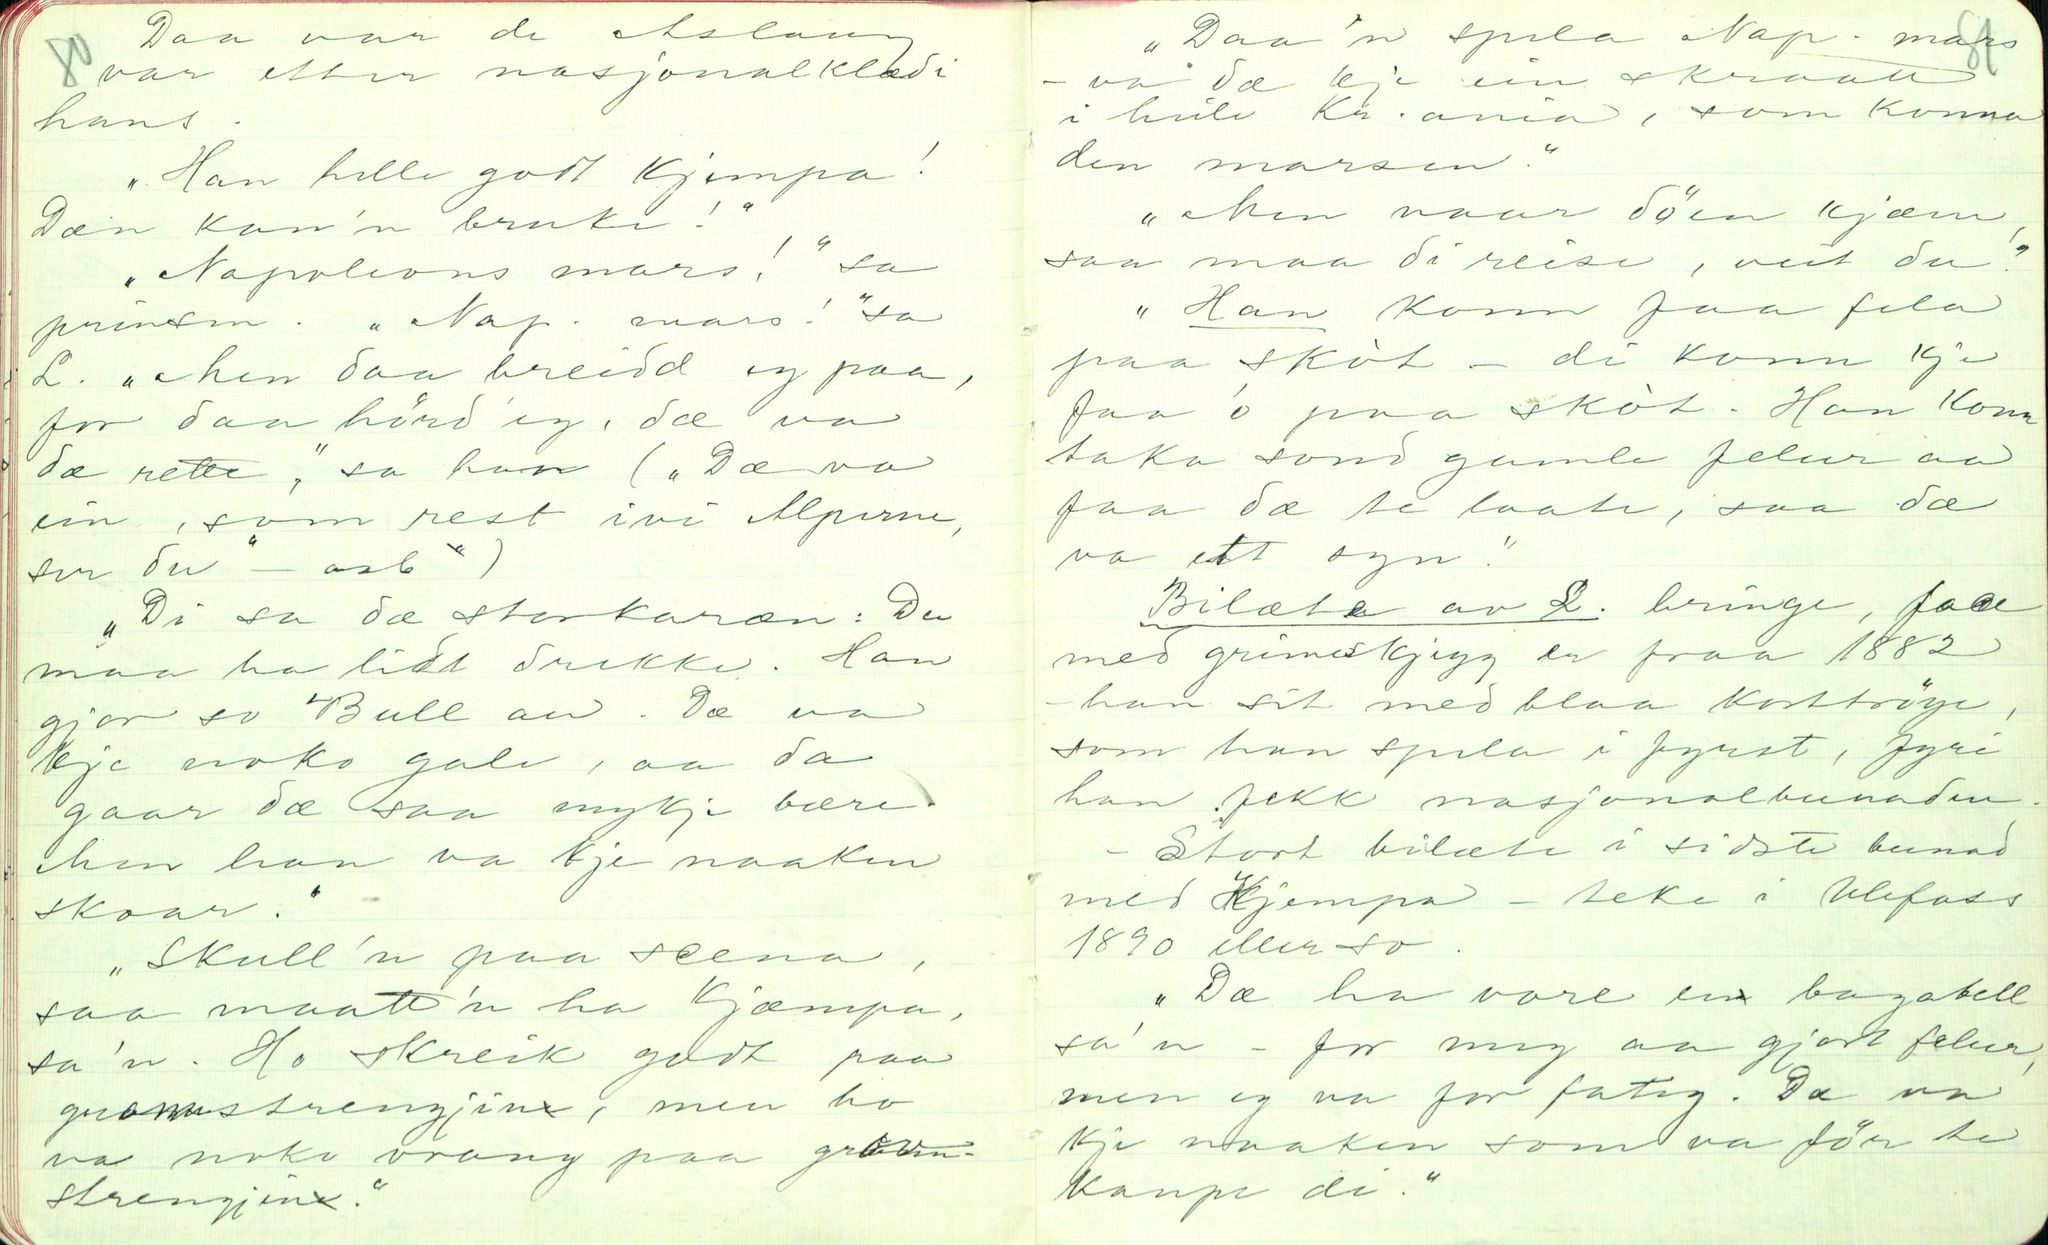 80
Daa var de Aslaug
var etter nasjonalklædi
hans.
„Han helle godt Kjempa!
Dæn kan'n bruke!"
„Napoleons mars!" sa
prinsen. „Nap. mars!" sa
L. „Men daa breidd eg paa,
for daa hörd' eg, dæ va
dæ rette," sa han („Dæ va
ein, som rest ivi Alperne,
ser du" – )
„Di sa dæ storkaræn: Du
maa ha lidt drikke. Han
gjor so Bull au. Dæ va
kje noko gale, aa da
gaar dæ saa mykji bære.
Men han va kje naaken
skoar."
„Skull'n paa scena,
saa maatte'n ha Kjæmpa,
sa'n. Ho skreik godt paa
strengjine, men ho
va noko vrang paa
strengjine."
81
„Daa'n spela Nap. mars
– va dæ kje ein skraatt
i heile Kr.ania, som konna
den marsen."
„Men naar döen kjæm,
saa maa di reise, veit du!"
„Han konn faa fela
paa skòt – di konn kje
faa 'o paa skòt. Han konn
taka sond gamle felur aa
faa dæ te laate, saa dæ
va ett syn."
Bilæte av L. bringe,
med grimeskjegg er fraa 1882
– han sit med blaa korttröye,
som han spela i fyrst, fyri
han fekk nasjonalbunaden.
– Stort bilæte i sidste bunad
med Kjempa – teke i Ulefoss
1890 eller so.
„Dæ ha vore ein bagatell
sa'n – for meg aa gjort felur,
men eg va for fatig. Dæ va
kje naaken som va för te
kaupe di."